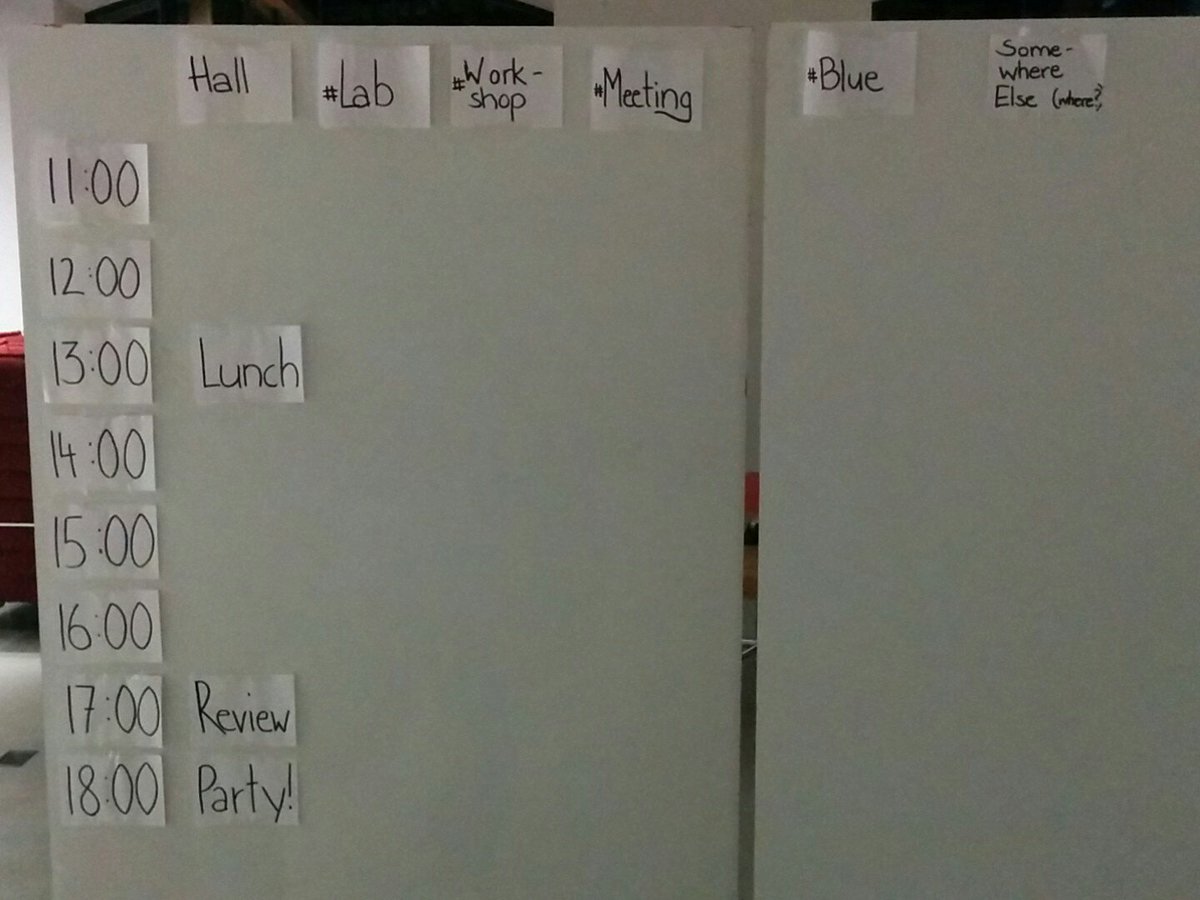 Hall
#Lab
#Work-
shop
#Meeting
#Blue
Some-
where
Else (where?)
11:00
12:00
13:00 Lunch
14:00
15:00
16:00
17:00 Review
18:00 Party!